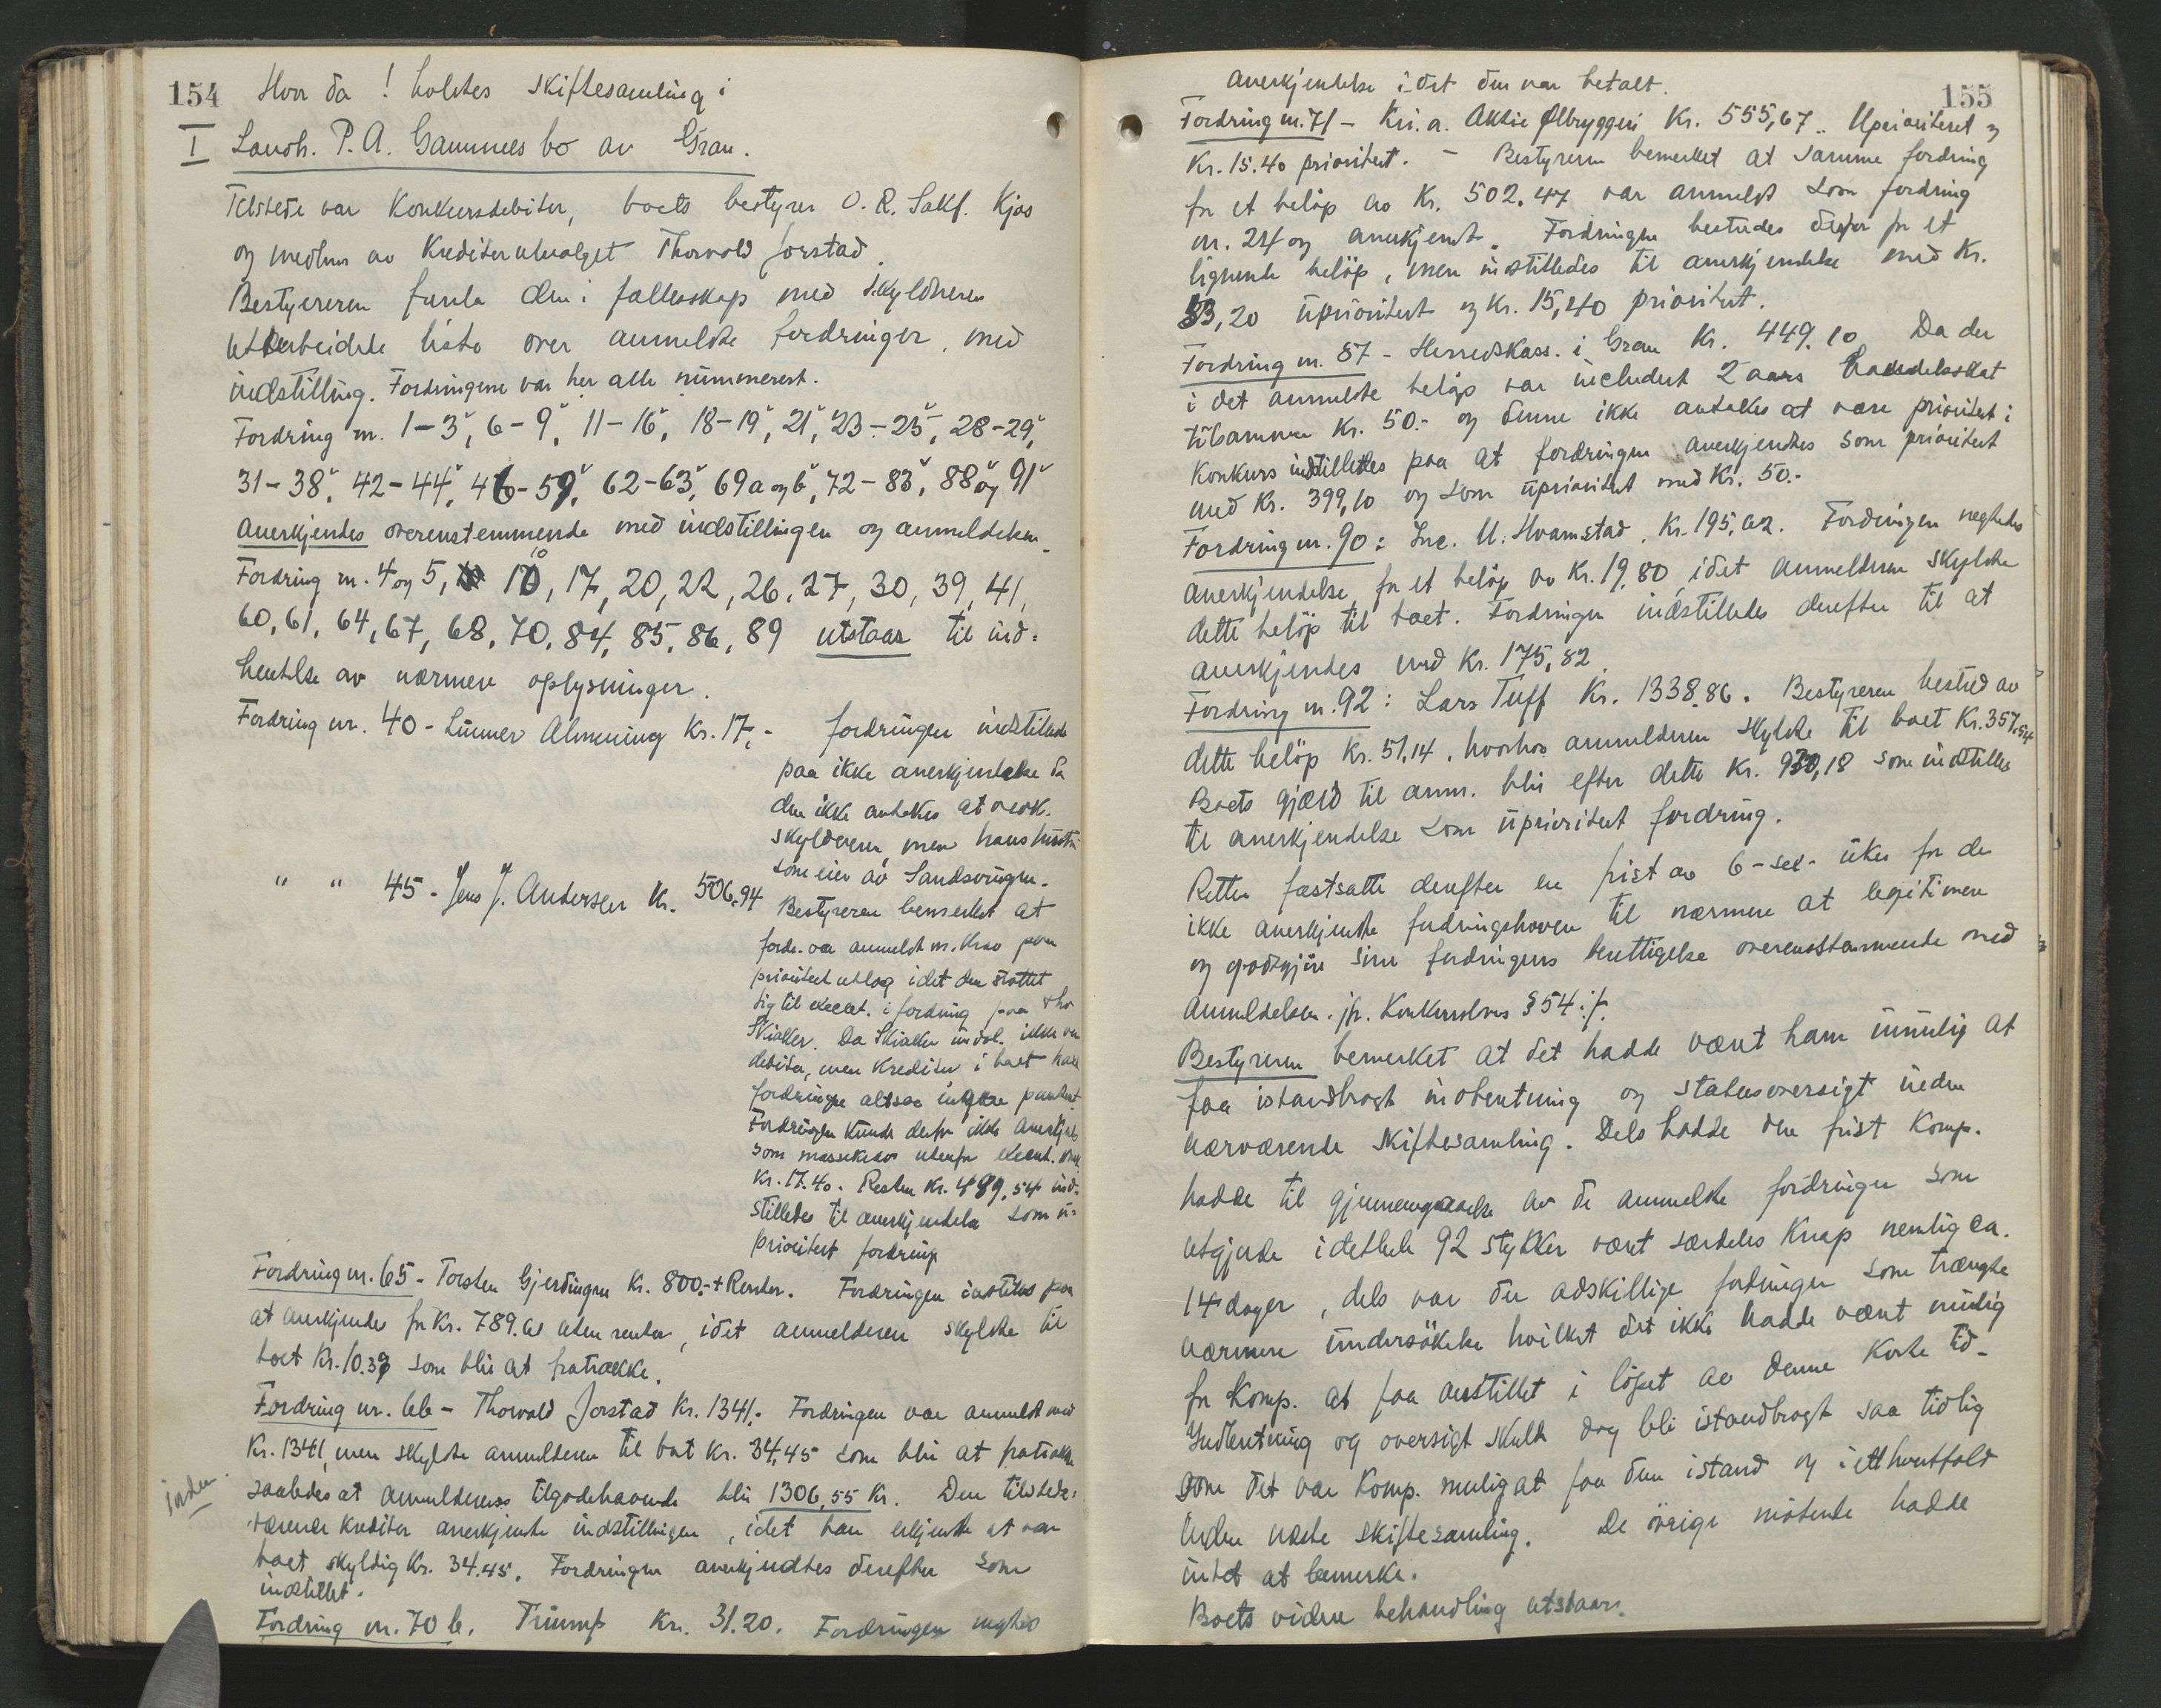 154 Hvor da ! holdtes skiftesamling i
I Landh. P. A. Gammes bo av Gran.
Tilstede var Konkursdebitor, boets bestyrer O. R. Sakf. Kjos
og medlem av Kreditorutvalget Thorvald Jorstad.
Bestyereren den i fællesskap med skyldneren
utarbeidede liste over anmeldte fordringer, med
indstilling. Fordringene var her alle nummerert.
Fordring nr. 1-3, 6-9, 11-16, 18-19, 21, 23-25, 28-29,
31-38, 42-44, 46-59, 62-63, 69a og b, 72-83, 88 og 91
anerkjendes overenstemmende med indstillingen og anmeldelsen.
Fordring nr. 4 og 5, 10, 17, 20, 22, 26, 27, 30, 39, 41,
60, 61, 64, 67, 68, 70, 84, 85, 86, 89 utstaar til ind-
hentelse av nærmere oplysninger.
Fordring nr. 40 - Lunner Almening Kr. 17,- fordringen indstilledes
paa ikke anerkjendelse da
den ikke antakes at vedk.
skylderen, men hans hustru
som eier av Sandsvingen.
" " 45 - Jens J. Andersen Kr. 506.94 Bestyreren bemerket at
fordr. var anmeldt m. krav paa
prioritert utlæg idet den støttet
sig til execut. i fordring paa
Skiaker. Da Skiaker indvl. ikke var
debitor, men Kreditor i boet hadde
fordringen altsaa ingen pankt.
Fordringen kunde derfor ikke anerkjendes
som massekrav utenfor med
Kr. 17.40. Resten Kr. 489,54 ind-
stilledes til anerkjendelse som u-
prioritert fordring
Fordring nr. 65 - Torsten Gjerdingen Kr. 800,- + Renter. Fordringen indstilles paa
at anerkjendes for Kr. 789.61 uten renter, idet anmelderen skyldte til
boet Kr. 10.39 som blir at fratrække.
Fordring nr. 66 - Thorvald Jorstad Kr. 1341,- Fordringen var anmeldt med
Kr. 1341, men skyldte anmelderen til boet Kr. 34,45 som blir at fratrække
saaledes at anmelderens tilgodehavende blir 1306,55 Kr. Den tilstede-
værende kreditor anerkjendte indstillingen, idet han erkjendte at var
boet skyldig Kr. 34.45. Fordringen anerkjendtes derefter som
indstillet.
Fordring nr. 70 b. Triumf Kr. 31.20. Fordringen negtes
155
anerkjendelse idet den var betalt.
Fordring nr. 71 - Kr.a. Aktie Ølbryggeri Kr. 555,67 Uprioritert og
Kr. 15.40 prioritert. - Bestyreren bemerket at samme fordring
for et beløp av Kr. 502.47 var anmeldt som fordring
nr. 24 og anerkjendt. Fordringen bestredes derfor for et
lignende beløp, men indstilledes til anerkjendelse med Kr.
53,20 uprioritert og Kr. 15,40 prioritert.
Fordring nr. 87 - Herredskass. i Gran Kr. 449.10 Da der
i det anmeldte beløp var includert 2 aars handelsskat
tilsammen Kr. 50.- og denne ikke antakes at være prioritert i
konkurs indstilledes paa at fordringen anerkjendtes som prioritert
med Kr. 399,10 og som uprioritert med Kr. 50.-
Fordring nr. 90: M. Hvamstad. Kr. 195,62. Fordringen negtedes
anerkjendelse for et beløp av Kr. 19.80, idet anmelderen skyldte
dette beløp til boet. Fordringen indstilledes derefter til at
anerkjendes med Kr. 175,82.
Fordring nr. 92: Lars Tuff Kr. 1338.86. Bestyreren bestred av
dette beløp Kr. 51.14, hvorhos anmelderen skyldte til boet Kr. 357.54
Boets gjæld til anm. blir efter dette Kr. 930,18 som indstilles
til anerkjendelse som uprioritert fordring.
Retten fastsatte derefter en frist av 6-sex- uker for de
ikke anerkjendte fordringshavere til nærmere at legitimere
og godtgjøre sine fordringers berettigelse overensstemmende med
anmeldelsen. jfr. Konkurslovens § 54
Bestyreren bemerket at det hadde været ham umulig at
faa istandbragt indberetning og statusoversigt inden
nærværende skiftesamling. Dels hadde den frist Komp.
hadde til gjennemgaaelse av de anmeldte fordringer som
utgjorde idethele 92 stykker været særdeles knap nemlig ca.
14 dager, dels var der adskillige fordringer som trængte
nærmere undersøkelse hvilket det ikke hadde været mulig
for Komp. at faa anstillet i løpet av denne korte tid.
Indberetning og oversigt skulde dog bli istandbragt saa tidlig
som det var Komp. mulig at faa den istand og i ethvertfald
inden næste skiftesamling. De øvrige møtende hadde
intet at bemerke.
Boets videre behandling utstaar.